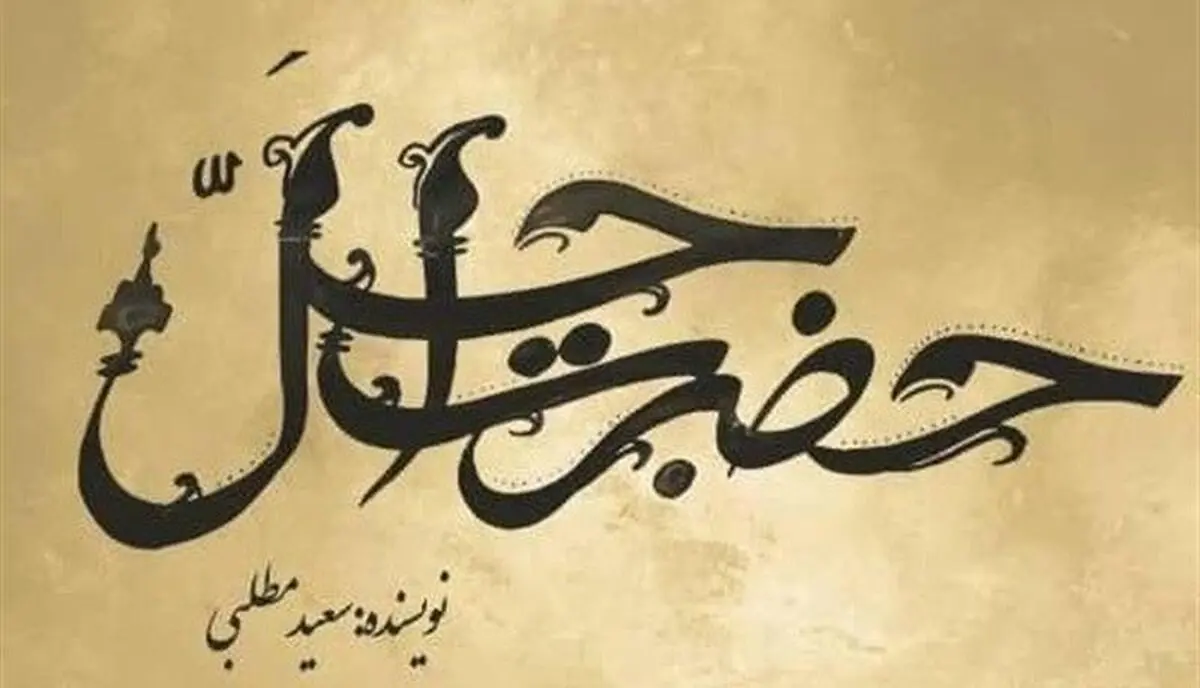 حضرت اجَلّ
نویسنده: سعید مطلبی